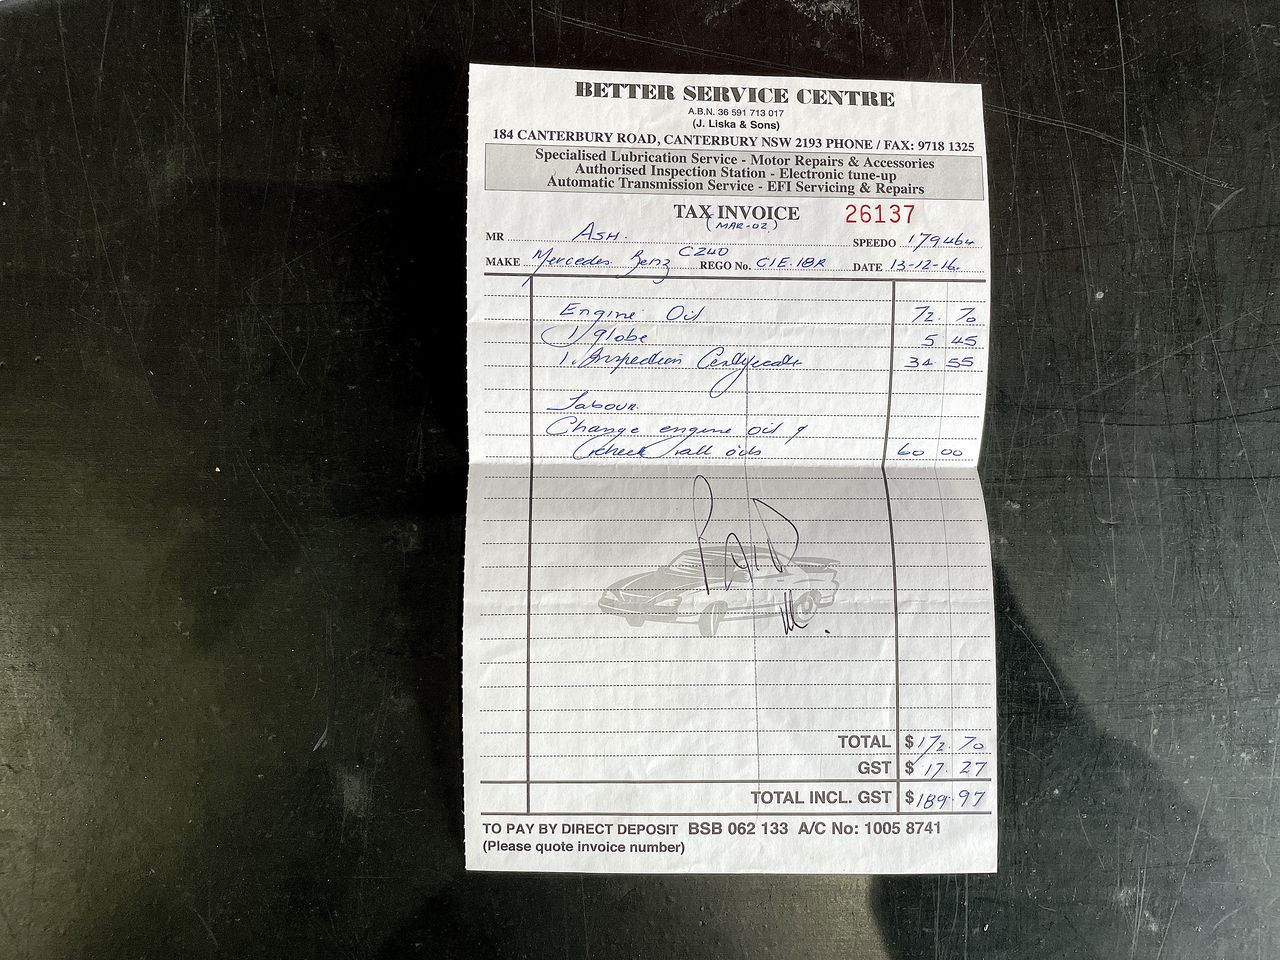 BETTER SERVICE CENTRE
A.B.N. 36 591 713 017
(J. Liska & Sons)
184 CANTERBURY ROAD, CANTERBURY NSW 2193 PHONE / FAX: 9718 1325
Specialised Lubrication Service - Motor Repairs & Accessories
Authorised Inspection Station - Electronic tune-up
Automatic Transmission Service - EFI Servicing & Repairs
TAX INVOICE 26137
(MAR-02)
MR Ash. SPEEDO 179464
MAKE Mercedes Benz C240 REGO No. CIE.18R DATE 13-12-16.
Engine Oil 72.70
1 globe 5 45
1. Inspection Certificate 34 55
Labour.
Change engine oil &
check all oils 60 00
PAID
TOTAL $172 70
GST $ 17.27
TOTAL INCL. GST $189.97
TO PAY BY DIRECT DEPOSIT BSB 062 133 A/C No: 1005 8741
(Please quote invoice number)